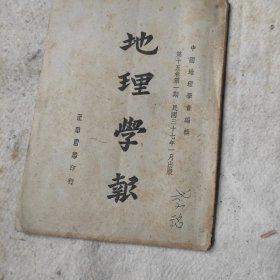 中國地理學會編輯
第十五卷第一期 民國三十七年一月出版
地理學報
正中書局印行